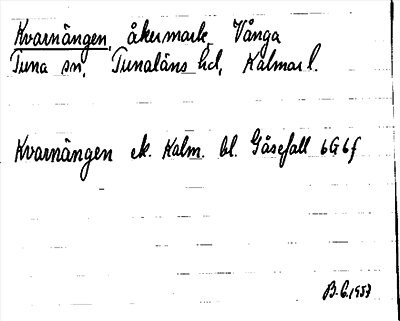 Kvarnängen, åkermark, Vånga
Tuna sn, Tunaläns hd, Kalmar l.
Kvarnängen ek. Kalm. bl. Gåsefall 6G6f
B.G. 1957